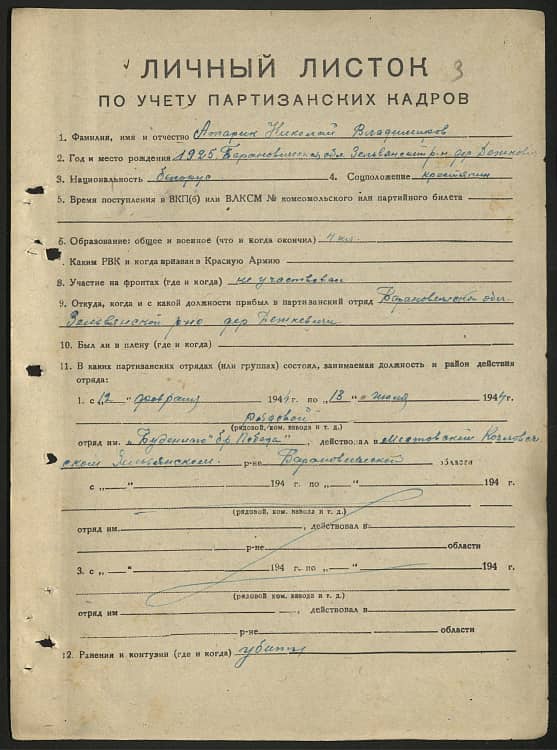 ЛИЧНЫЙ ЛИСТОК 3
ПО УЧЕТУ ПАРТИЗАНСКИХ КАДРОВ
1. Фамилия, имя и отчество Апарик Николай Владимиров
2. Год и место рождения 1925 Барановичская обл. Зельвенский р-н дер
3. Национальность белорус 4. Соцположение крестянин
5. Время поступления в ВКП(б) или ВЛКСМ № комсомольского или партийного билета
6. Образование: общее и военное (что и когда окончил) 4 кл.
7. Каким РВК и когда призван в Красную Армию
8. Участие на фронтах (где и когда) не участвовал
9. Откуда, когда и с какой должности прибыл в партизанский отряд Барановичской обл.
Зельвянской р-но дер Деткевичи
10. Был ли в плену (где и когда)
11. В каких партизанских отрядах (или группах) состоял, занимаемая должность и район действия
отряда:
1. с „12„ февраля 1944 г. по „13„ июля 1944 г.
рядовой
(рядовой, ком. взвода и т. д.)
отряд им. „Буденного" бр. Победа", действовал в Мостовский Козловщ
ском Зельвянском р-не Барановичской области
с „—„ 194 г. по „—„ 194 г.
(рядовой, ком. взвода и т. д.)
отряд им. , действовал в
р-не области
3. с „—„ 194 г. по „—„ 194 г.
(рядовой, ком. взвода и т. д.)
отряд им , действовал в
р-не области
12. Ранения и контузии (где и когда) убит